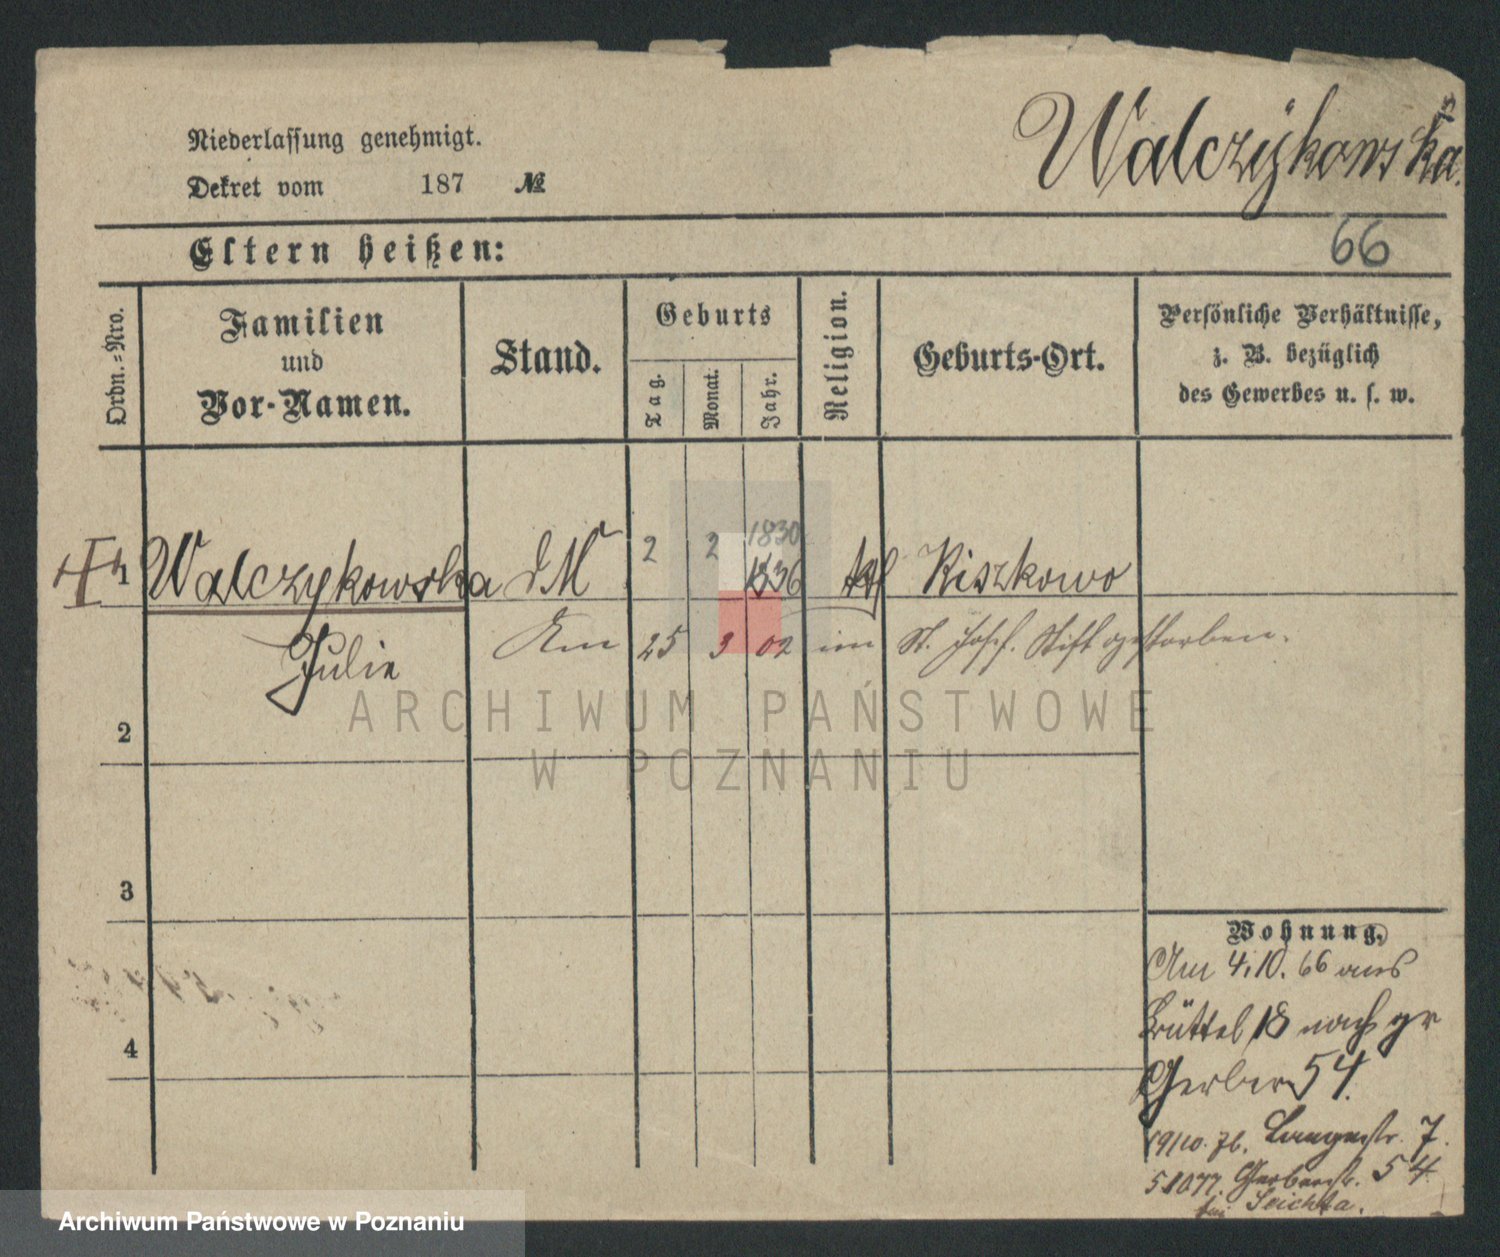 Walczykowska.
Niederlassung genehmigt.
Dekret vom 187 №
Eltern heißen:
66
Ordn.=Nro.
Familien
und
Vor-Namen.
Stand.
Geburts
Tag.
Monat.
Jahr.
Religion.
Geburts-Ort.
Persönliche Verhältnisse,
z. B. bezüglich
des Gewerbes u. s. w.
1830
1 Walczykowska d M 2 2 1836 kth Kiszkowo
Julie
Am 25 3 02 im St. Josef. Stift gestorben.
2
3
4
Wohnung.
Am 4.10. 66 aus
Büttel 18 nach gr
Gerber 54.
19/10. 76. Langestr. 7.
5 10 77. Gerberstr. 54
bei Seichta.
ARCHIWUM PAŃSTWOWE
W POZNANIU
Archiwum Państwowe w Poznaniu